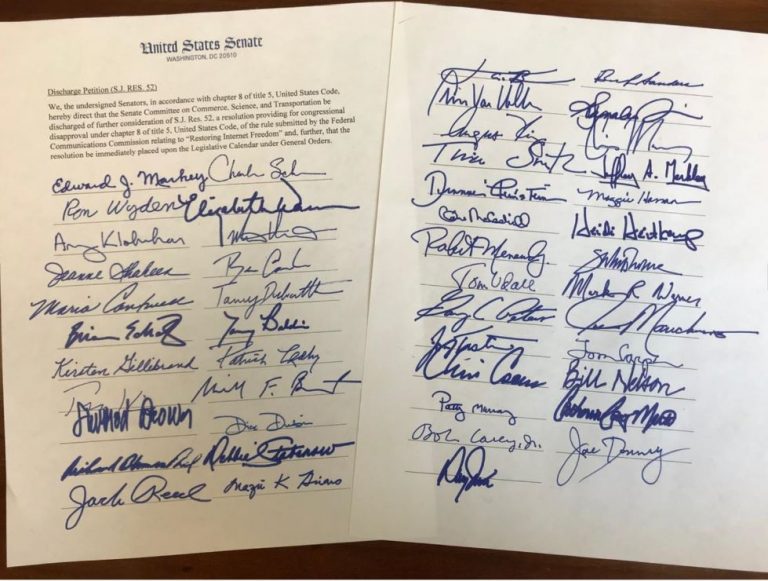 United States Senate
WASHINGTON, DC 20510
Discharge Petition (S.J. RES. 52)
We, the undersigned Senators, in accordance with chapter 8 of title 5, United States Code,
hereby direct that the Senate Committee on Commerce, Science, and Transportation be
discharged of further consideration of S.J. Res. 52, a resolution providing for congressional
disapproval under chapter 8 of title 5, United States Code, of the rule submitted by the Federal
Communications Commission relating to "Restoring Internet Freedom" and, further, that the
resolution be immediately placed upon the Legislative Calendar under General Orders.
Edward J. Markey
Ron Wyden Elizabeth Warren
Amy Klobuchar
Jeanne Shaheen
Maria Cantwell Tammy Duckworth
Brian Schatz Tammy Baldwin
Kirsten Gillibrand Patrick Leahy
Sherrod Brown
Richard Blumenthal Debbie Stabenow
Jack Reed Mazie K Hirono
Chris Van Hollen
Angus King
Tina Smith Jeffrey A. Merkley
Dianne Feinstein Maggie Hassan
Heidi Heitkamp
Robert Menendez
Tom Udall Mark R Warner
Joe Manchin
Tom Carper
Chris Coons Bill Nelson
Patty Murray
Bob Casey, Jr. Joe Donnelly